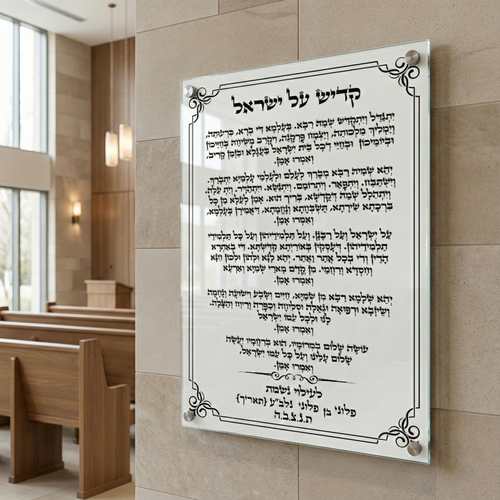 קדיש על ישראל
יתגדל ויתקדש שמה רבא. בעלמא די ברא, כרעותה,
וימליך מלכותה, ויצמח פרקנה, ויקרב משיחה בחייכון
וביומיכון ובחיי דכל בית ישראל בעגלא ובזמן קריב,
ואמרו אמן.
יהא שמיה רבא מברך לעלם ולעלמי עלמיא יתברך.
וישתבח, ויתפאר, ויתרומם, ויתנשא, ויתהדר, ויתעלה,
ויתהלל שמה דקדשא, בריך הוא. אמן לעלא מן כל
ברכתא שירתא, תשבחתא ונחמתא, דאמירן בעלמא,
ואמרו אמן.
על ישראל ועל רבנן. ועל תלמידיהון ועל כל תלמידי
תלמידיהון. דעסקין באוריתא קדשתא. די באתרא
הדין ודי בכל אתר ואתר. יהא לנא ולהון ולכון חנא
וחסדא ורחמי. מן קדם מארי שמיא וארעא
ואמרו אמן.
יהא שלמא רבא מן שמיא, חיים ושבע וישועה ונחמה
ושיזבא ורפואה וגאלה וסליחה וכפרה וריוח והצלה.
לנו ולכל עמו ישראל
ואמרו אמן.
עושה שלום במרומיו, הוא ברחמיו יעשה
שלום עלינו ועל כל עמו ישראל,
ואמרו אמן.
לעילוי נשמת
פלוני בן פלוני נלב"ע {תאריך}
ת.נ.צ.ב.ה